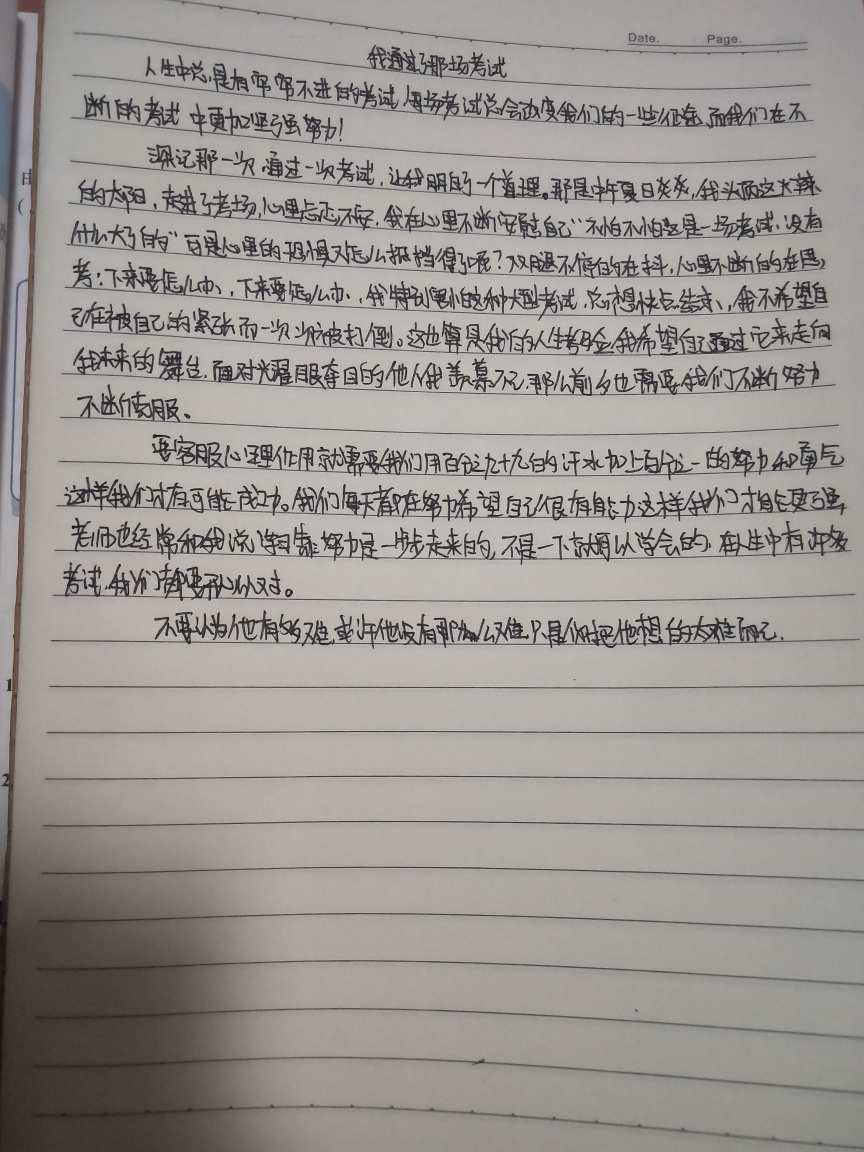 Date.  Page.
我通过了那场考试
人生中总是有穷穷不进的考试,每场考试总会改变我们的一些征途,而我们在不
断的考试中更加坚强努力!
深记那一次,通过一次考试,让我明白了一个道理。那是中午夏日炎炎,我头顶这火辣
的太阳,走进了考场,心里忐忑不安,我在心里不断安慰自己“不怕不怕这是一场考试,没有
什么大了的”可是心里的恐惧又怎么抵挡得了呢?双腿不停的在抖,心里不断的在思
考:下来要怎么办、下来要怎么办、我特别害怕这种大型考试,总想快点结束、,我不希望自
己在被自己的紧张而一次次被打倒。这也算是我的人生考验,我希望自己通过它来走向
我未来的舞台.面对光耀眼夺目的他人我羡慕不已,那么前方也需要我们不断努力
不断克服。
要客服心理作用就需要我们用百分之九十九的汗水加上百分之一的努力和勇气
这样我们才有可能成功。我们每天都在努力希望自己很有能力这样我们才能更强,
老师也经常和我说学习靠努力是一步步走来的,不是一下就可以学会的,在人生中有
考试,我们都要开心以对。
不要认为他有多难,或许他没有那么难只是你把他想的太难而已.